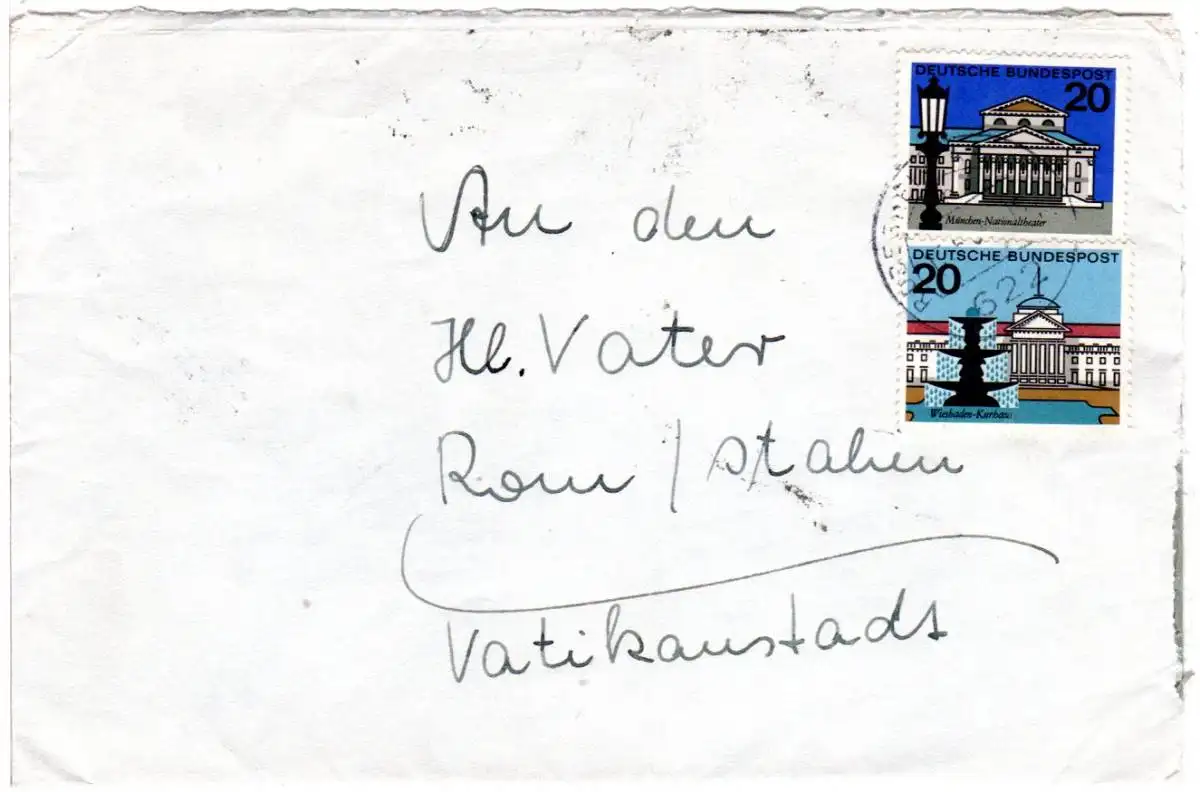 DEUTSCHE BUNDESPOST
20
München-Nationaltheater
DEUTSCHE BUNDESPOST
20
622
Wiesbaden-Kurhaus
An den
Hl. Vater
Rom / Italien
Vatikanstadt